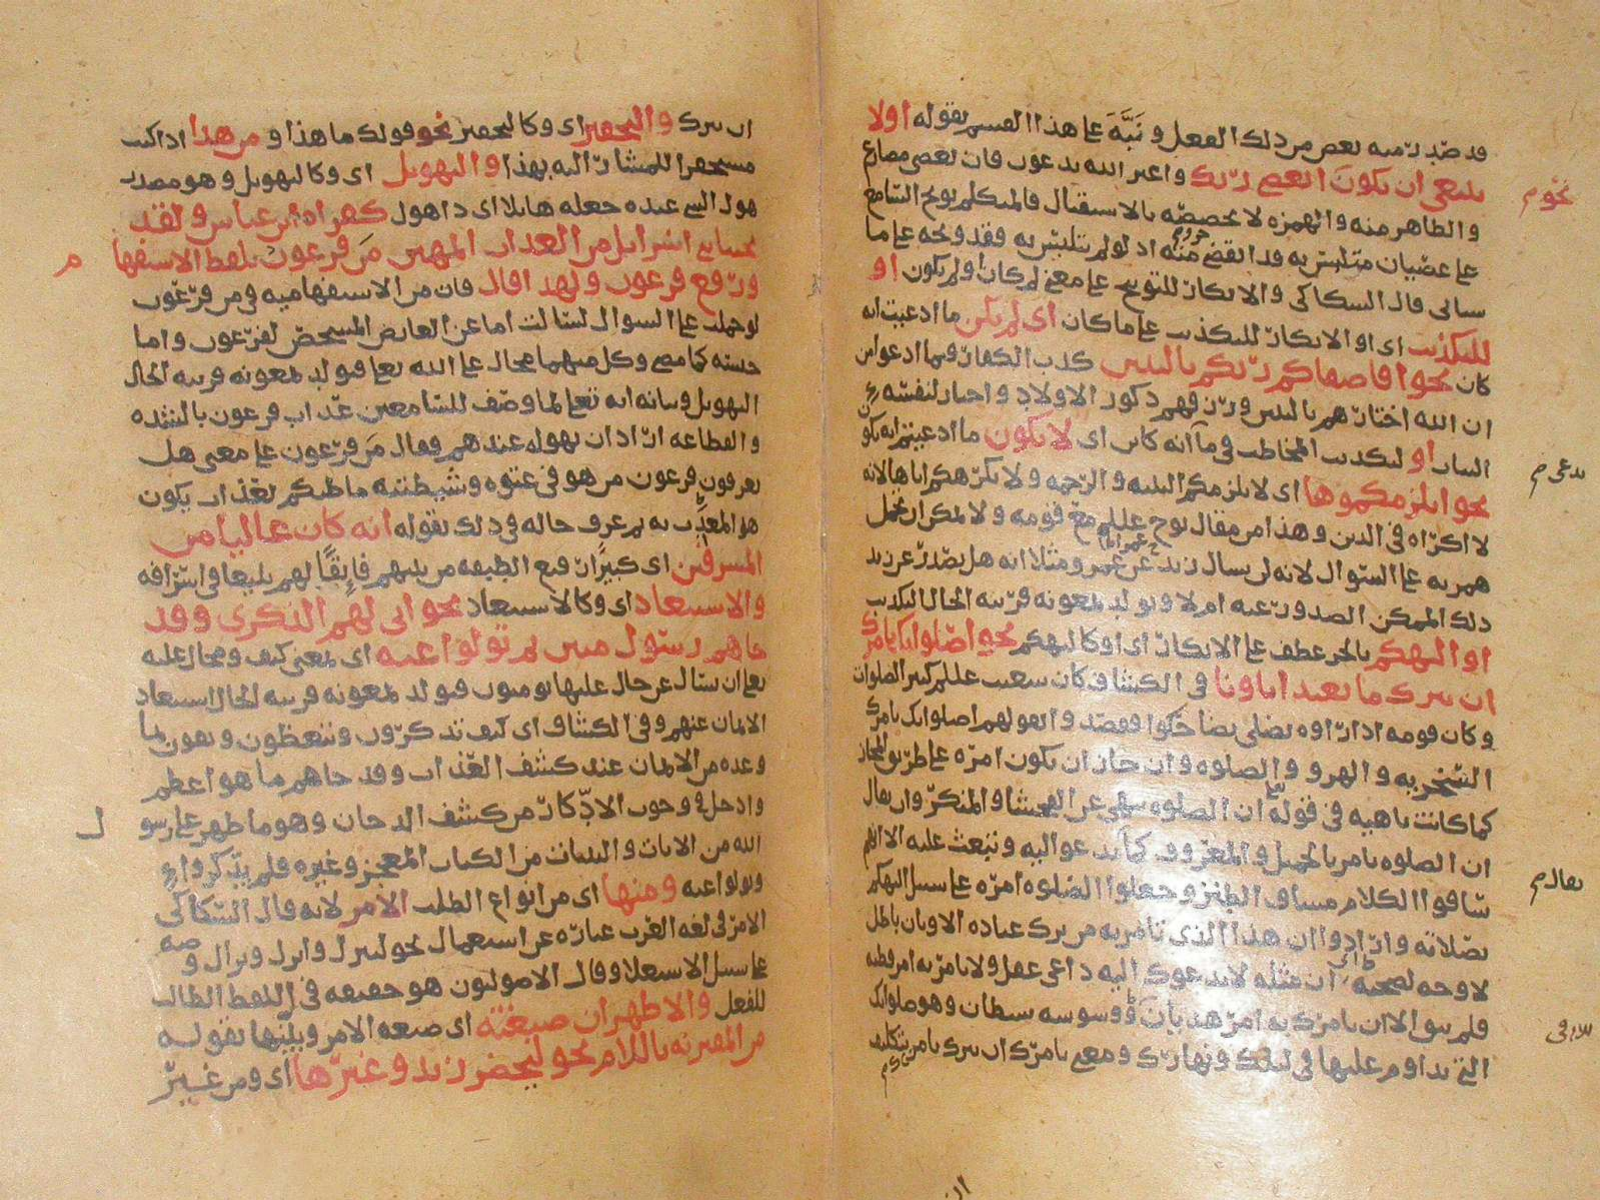 قد صدر منه بعض من ذلك الفعل و نَبَّهَ على هذا القسم بقوله اولا
ينبغي ان يكون اتعصي ربك و اغير الله تدعون فان تعصي مضارع
و الظاهر منه و الهمزه لا تخصصه بالاستقبال فالمتكلم يوبخ السامع
على عصيان متلبس به قد انقضى منه اذ لو لم يتلبس به فقد وبخه على ما
سياتي قال السكاكي و الانكار للتوبيخ على معنى لم كان او لم يكون او
للتكذيب اي او الانكار للتكذيب على ما كان اي لم يكن ما ادعيت انه
كان نحو افاصفاكم ربكم بالبنين كذب الكفار فيما ادعوا من
ان الله اختارهم بالبنين و رزقهم ذكور الاولاد و اختار لنفسه
البنات او لتكذيب المخاطب في ما انه كاين اي لا يكون ما ادعيتم انه يكو
نحو انلزمكموها اي لا نلزمكم البينه و الرحمه و لا نكرهكم اياها لانه
لا اكراه في الدين و هذا من مقال نوح عللم مع قومه و لا المكرا
همربه على السوال لانه لن يسال زيد عن عمرو مثلا انه هل يصدر عن زيد
ذلك الممكن الصدور عنه ام لا و تولد بمعونه قرينه الحال التكذيب
او التهكم بالجر عطف على الانكار اي او كالتهكم نحو اصلواتك تامرك
ان نترك ما يعبد اباونا في الكشاف كان شعيب عللم كثير الصلوات
و كان قومه اذا راوه يصلي تضاحكوا فقصدوا بقولهم اصلواتك تامرك
السخريه و الهزو و الصلوه و ان جاز ان يكون امره على طريق المجاز
كما كانت ناهيه في قوله ان الصلوه تنهى عن الفحشا و المنكر و ان يقال
ان الصلوه تامر بالجميل و المعروف كما تدعو اليه و تبعث عليه الا انهم
ساقوا الكلام مساق الطنز و جعلوا الصلوه امره على سبيل التهكم
بصلاته و ارادوا ان هذا الذي تامر به من ترك عباده الاوثان باطل
لا وجه لصحته و ان مثله لا يدعوك اليه داعي عقل و لا يامر به امر فطنه
فلم يبق الا ان يامرك به امر هذيان و وسوسه شيطان و هو صلواتك
التي تداوم عليها في ليلك و نهارك و معنى تامرك ان نترك تامر بتكليف
نحو م
يدعى م
يقال م
ان نترك و التحقير اي و كالتحقير نحو قولك ما هذا و من هذا اذا كنت
مستحقرا للمشار اليه بهذا و التهويل اي و كالتهويل و هو مصدر
هول الشي عنده جعله هايلا اي ذا هول كقراه ابن عباس و لقد
نجينا بني اسرائيل من العذاب المهين مَن فرعون بلفظ الاستفها
و رفع فرعون و لهذا قال فان من الاستفهاميه في من فرعون
لو حملت على السوال لسالت اما عن العارض المشخص لفرعون و اما
جنسه كما مضى و كل منهما محال على الله تعا فتولد بمعونه قرينه الحال
التهويل و بيانه انه تعا لما وصف للسامعين عذاب فرعون بالشده
و الفظاعه اراد ان يهوله عندهم فقال مَن فرعون على معنى هل
تعرفون فرعون من هو في عتوه و شيطنته ما ظنكم بعذاب يكون
هو المعذِّب به ثم عرف حاله في ذلك بقوله انه كان عاليا من
المسرفين اي كبيرًا رفيع الطبقه من بينهم فايقًا لهم بليغا في اسرافه
و الاستبعاد اي و كالاستبعاد نحو انى لهم الذكرى و قد
جاهم رسول مبين ثم تولوا عنه اي بمعنى كيف و محال عليه
تعا ان يسال عن حال عليها يومنون فتولد بمعونه قرينه الحال استبعاد
الايمان عنهم و في الكشاف اي كيف تذكرون و تتعظون و يفون بما
وعده من الايمان عند كشف العذاب و قد جاهم ما هو اعظم
و ادخل في وجوب الادّكار من كشف الدخان و هو ما ظهر على رسو
الله من الايات و البينات من الكتاب المعجز و غيره فلم يذكروا
و تولوا عنه و منها اي من انواع الطلب الامر لانه قال السكاكي
الامر في لغه العرب عباره عن استعمال نحو لينزل و انزل و نزال و صه
على سبيل الاستعلا و قال الاصوليون هو حقيقه في اللفظ الطالب
للفعل و الاظهر ان صيغته اي صيغه الامر و بينها بقوله
من المقترنه باللام نحو ليحضر زيد و غيرها اي و من غير
م
ل